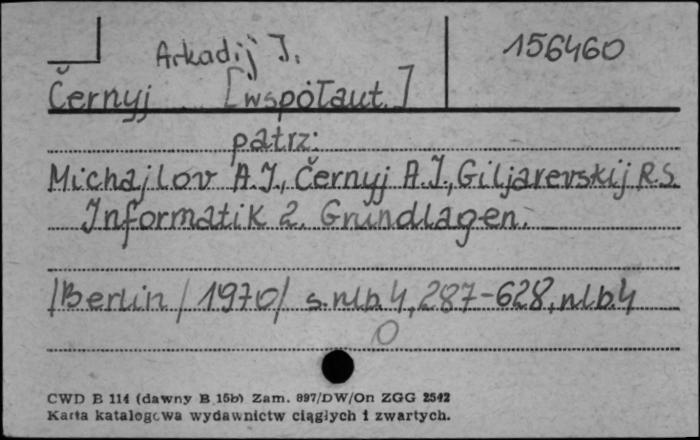 Arkadij I. 156460
Černyj [współaut.]
patrz:
Michajlov A.I., Černyj A.I., Giljarevskij R.S.
Informatik 2. Grundlagen.
/Berlin/ 1970/ s. nlb. 4, 287-628, nlb. 4
0
CWD B 114 (dawny B 15b) Zam. 897/DW/On ZGG 2542
Karta katalogowa wydawnictw ciągłych i zwartych.